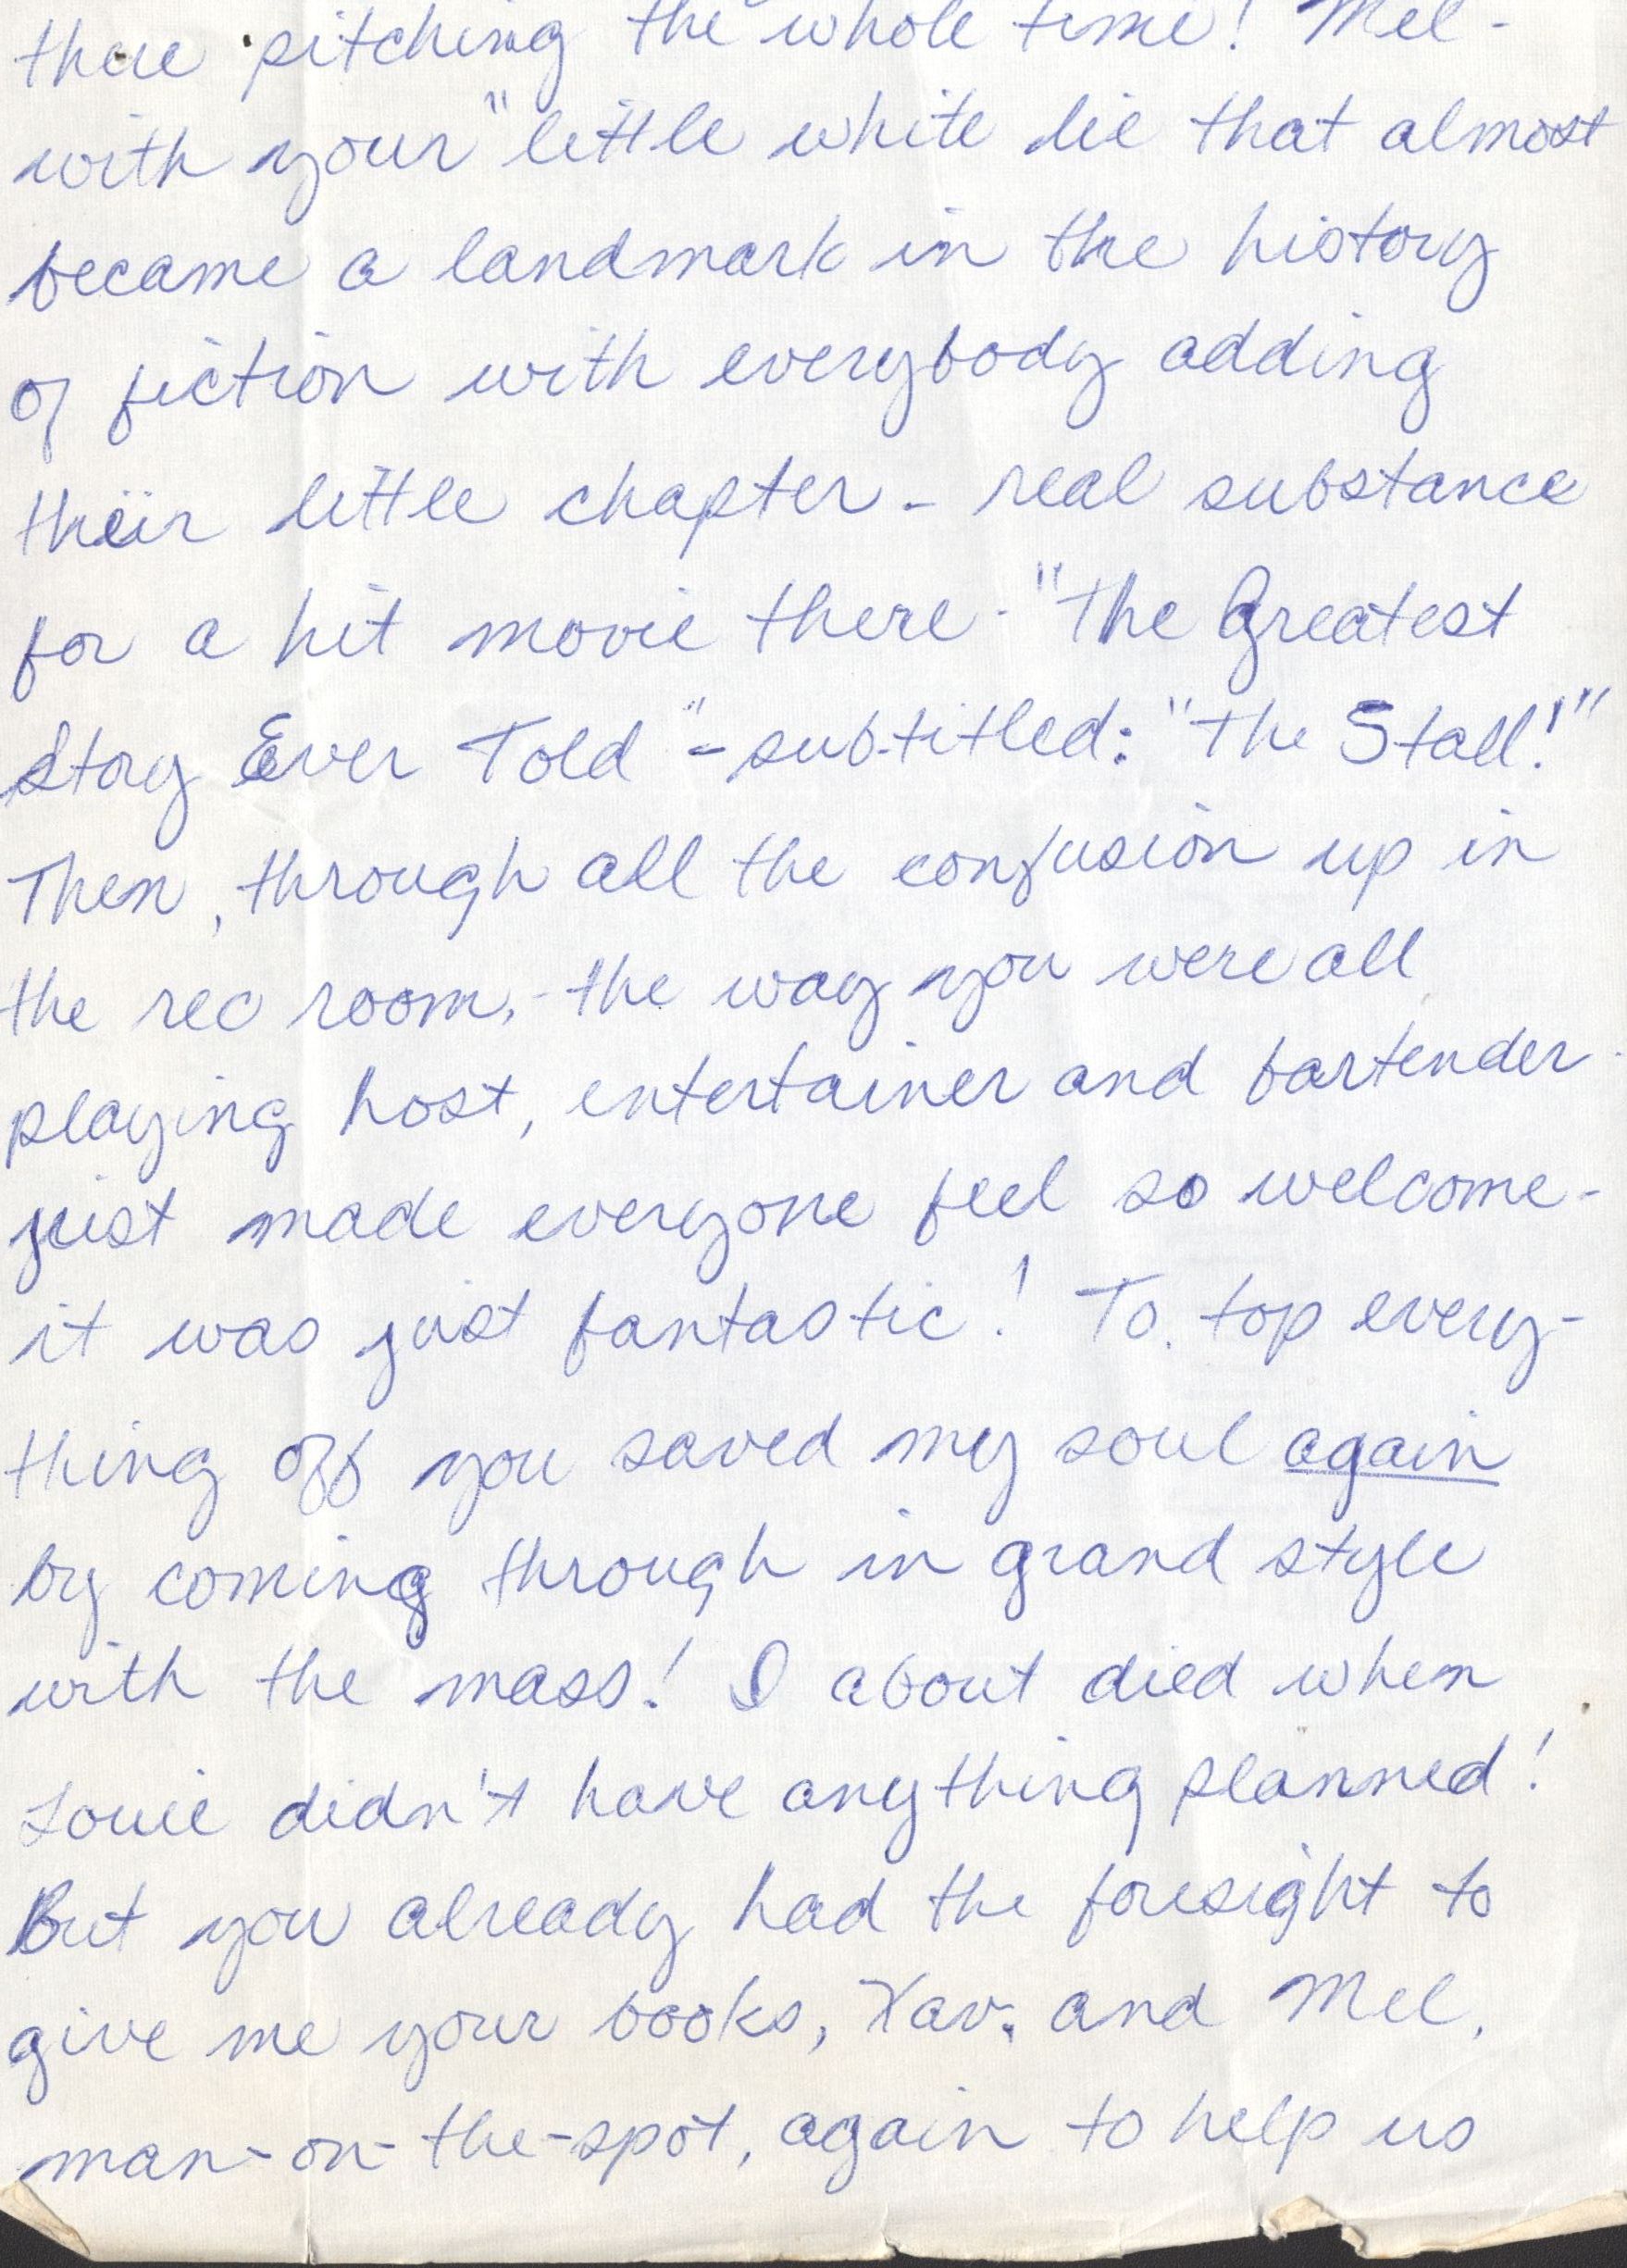 there pitching the whole time! Mel -
with your "little white lie that almost
became a landmark in the history
of fiction with everybody adding
their little chapter - real substance
for a hit movie there - "The Greatest
Story Ever Told" - sub-titled: "The Stall!"
Then, through all the confusion up in
the rec room, - the way you were all
playing host, entertainer and bartender
just made everyone feel so welcome -
it was just fantastic! To top every-
thing off you saved my soul again
by coming through in grand style
with the mass! I about died when
Louie didn't have anything planned!
But you already had the foresight to
give me your books, Xav. and Mel,
man-on-the-spot, again to help us